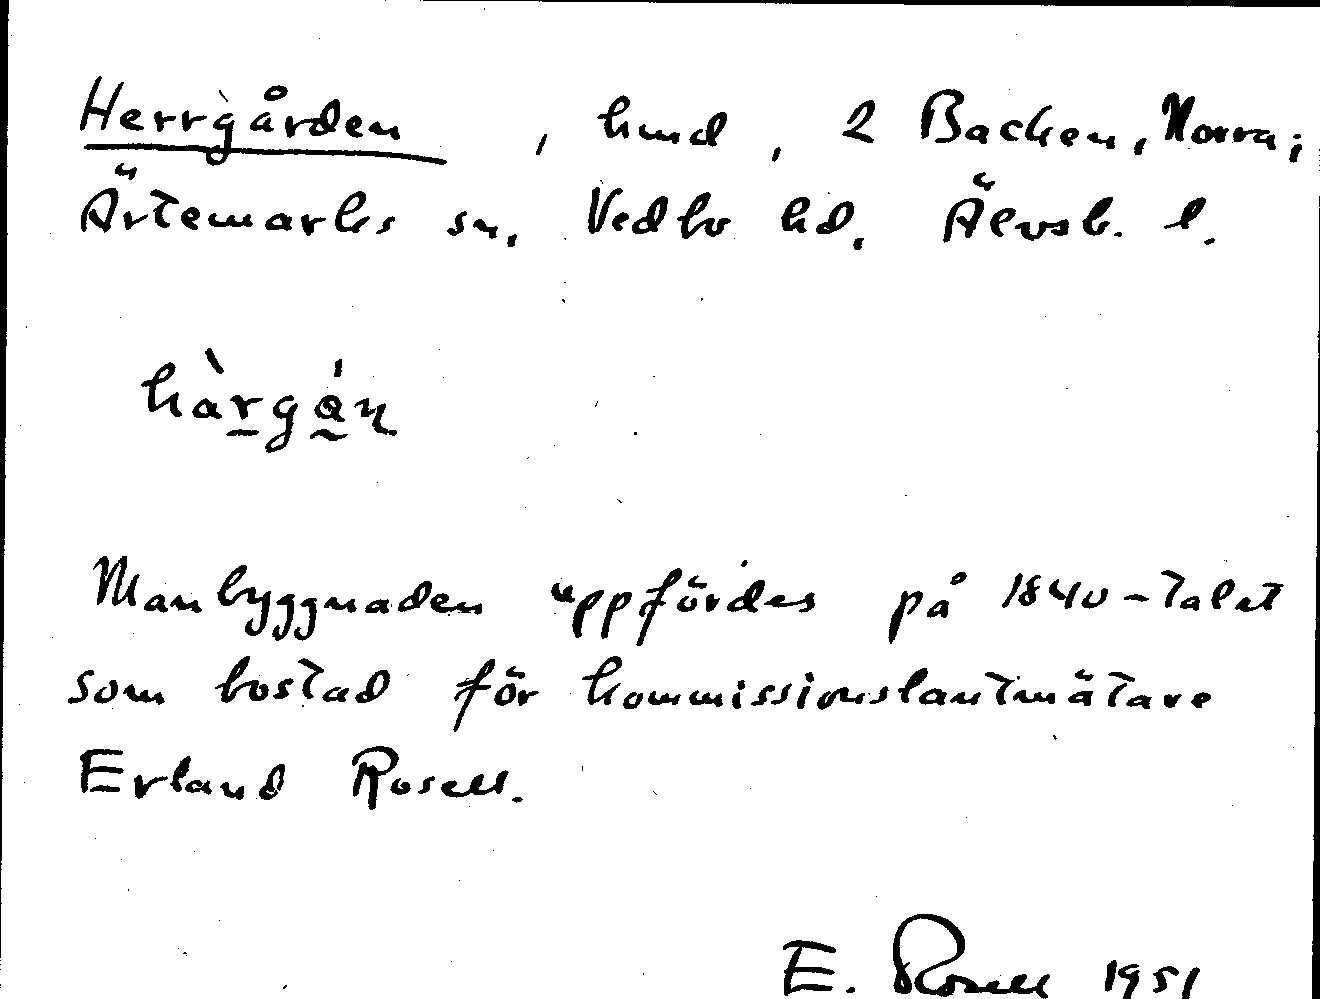 Herrgården, hmd, 2 Backen, Norra;
Ärtemarks sn, Vedbo hd, Älvsb. l.
hàrgán
Manbyggnaden uppfördes på 1840-talet
som bostad för kommissionslantmätare
Erland Rosell.
E. Rosell 1951